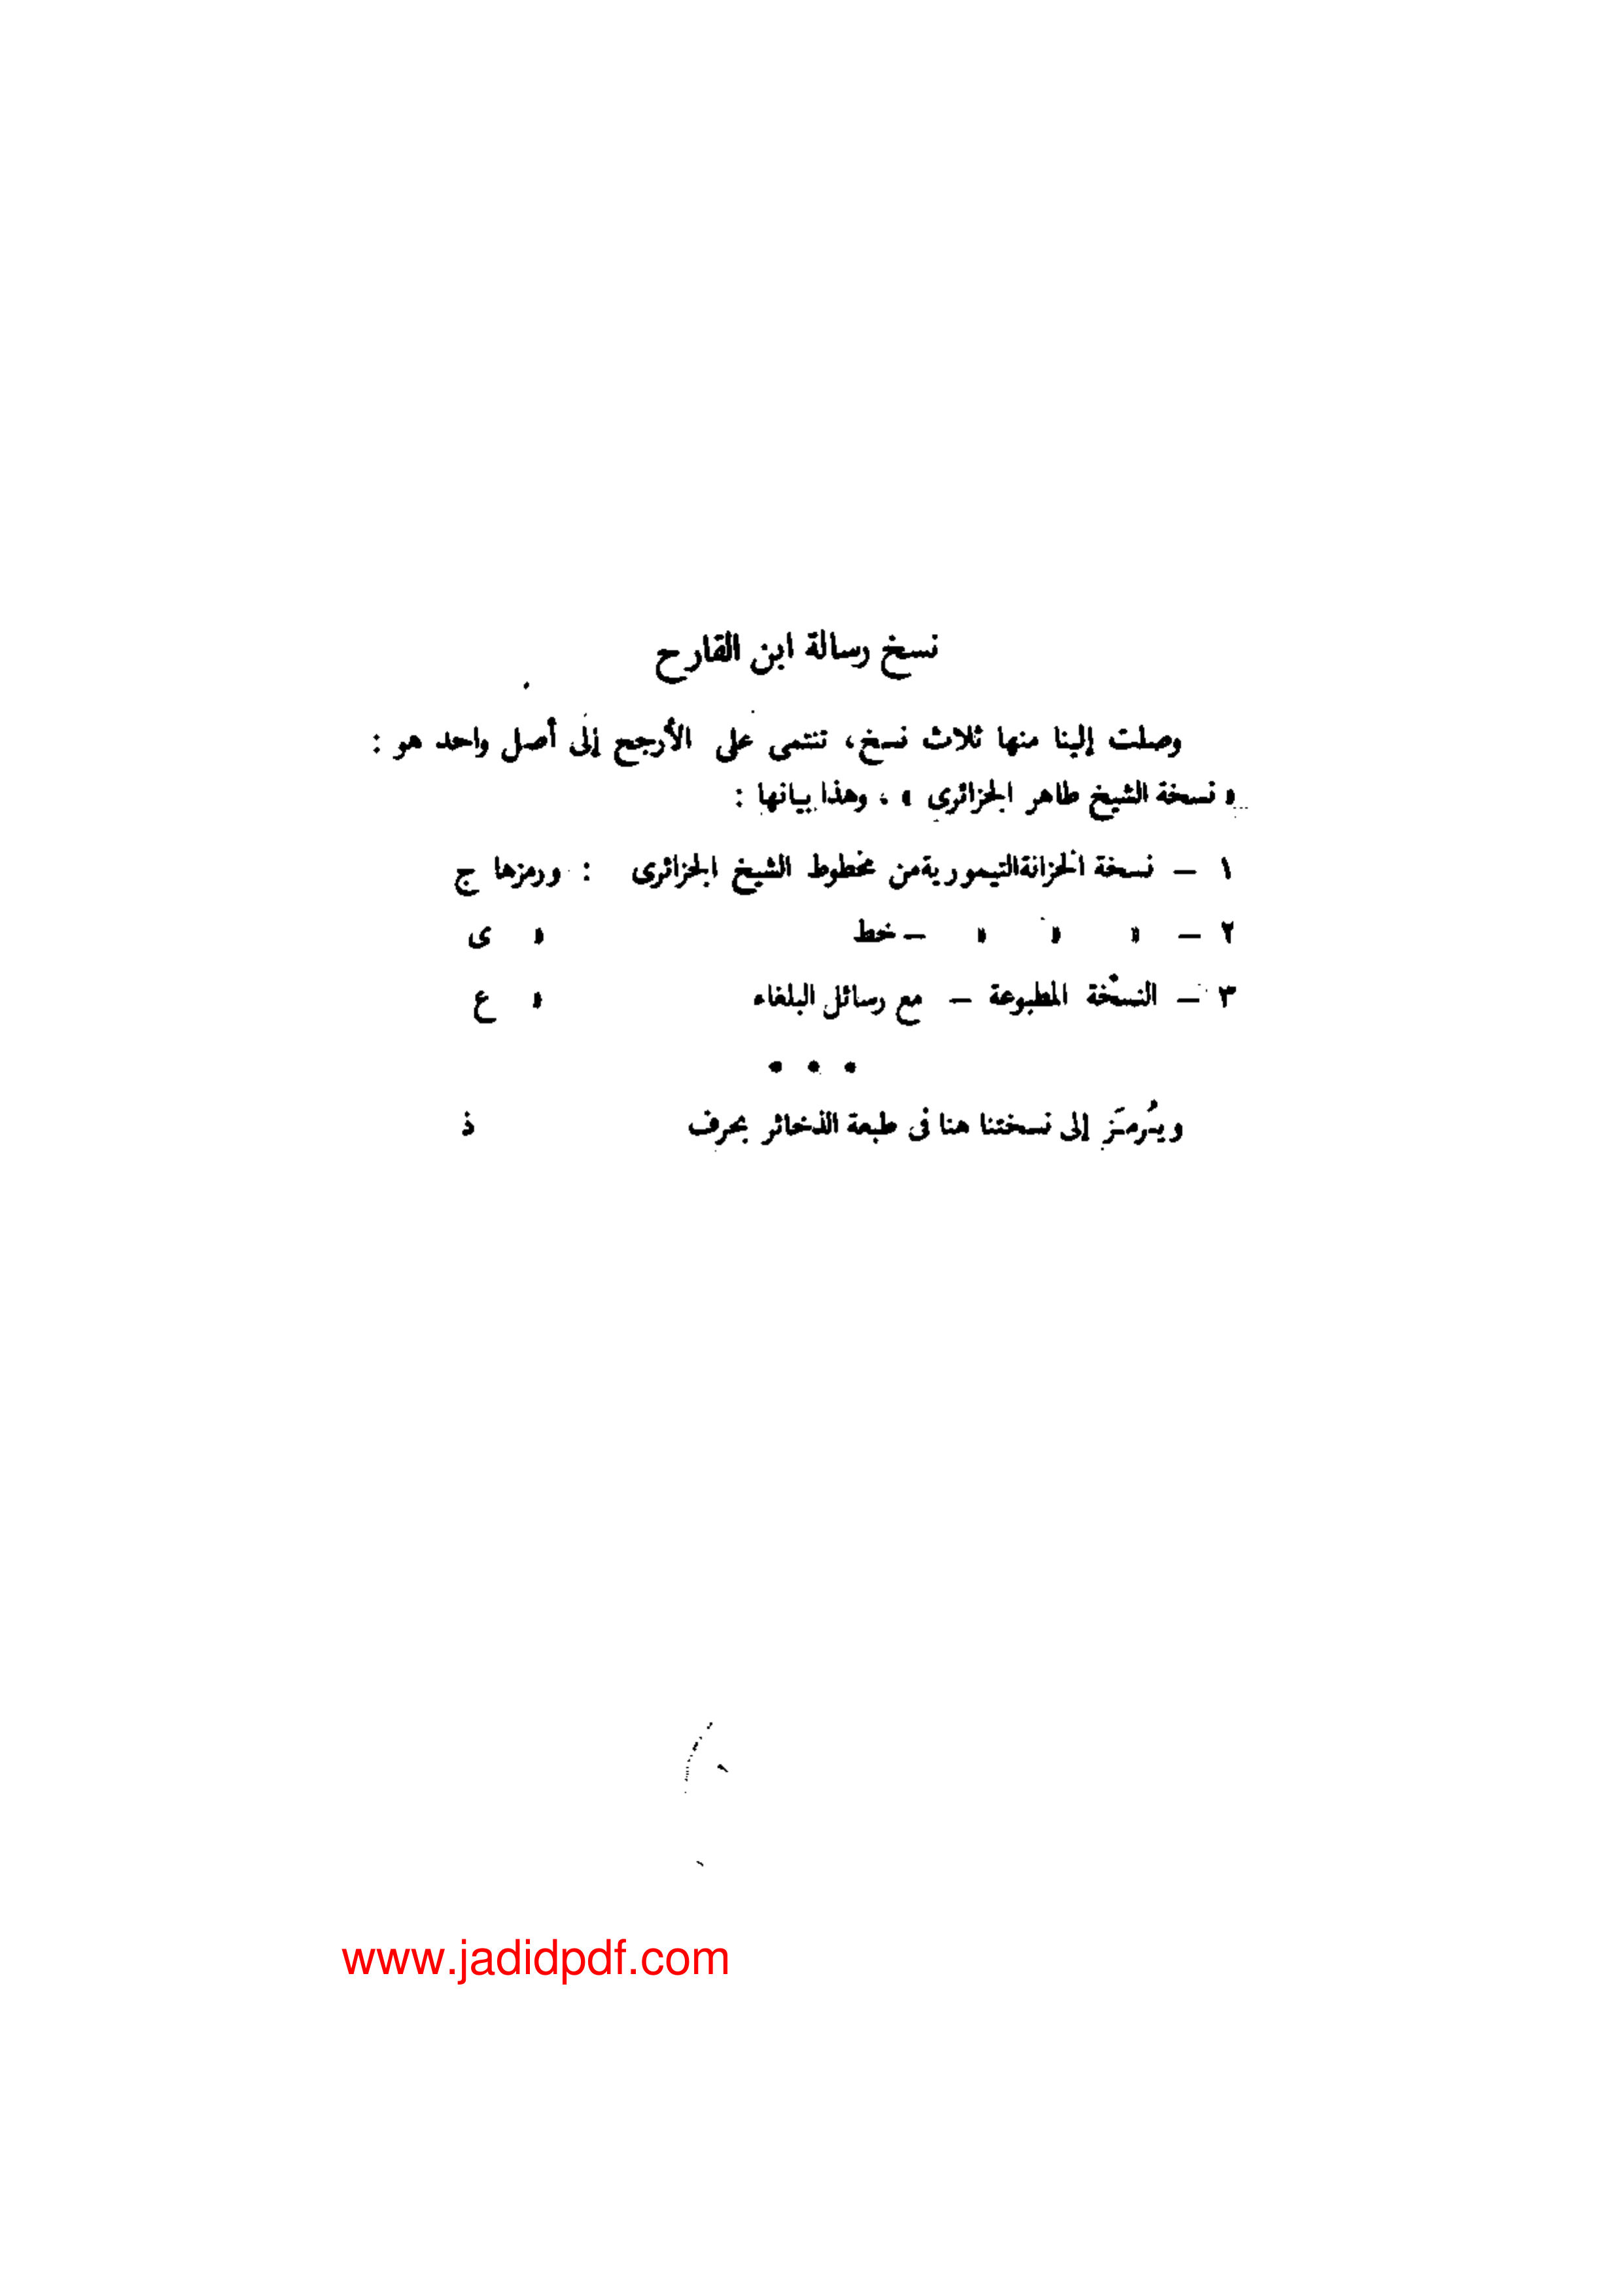 نسخ رسالة ابن القارح
وصلت إلينا منها ثلاث نسخ، تنتمى على الأرجح إلى أصل واحد هو :
« نسخة الشيخ طاهر الجزائرى » . وهذا بيانها :
١ – نسخة الخزانة التيمورية من مخطوط الشيخ الجزائرى : ورمزها ج
٢ – » » » – خط » ى
٣ – النسخة المطبوعة – مع رسائل البلغاء » ع
• • •
ويُرمَز إلى نسختنا هنا فى طبعة الذخائر بحرف ذ
www.jadidpdf.com